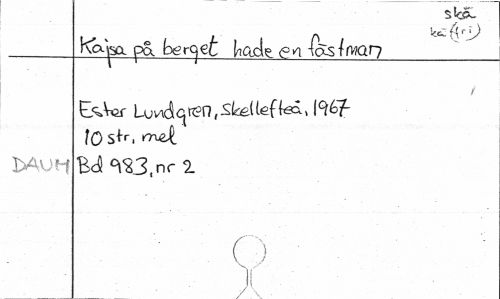 skä
kä (fri)
Kajsa på berget hade en fästman
Ester Lundgren, Skellefteå, 1967
10 str, mel
DAUM Bd 983, nr 2